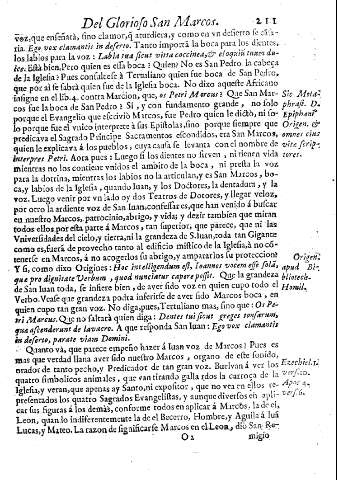 Del Glorioso San Marcos. 211
voz, que enseñarà, sino clamor, q̃ aturdiera, y como en vn desierto se esta-
ria. Ego vox clamantis in deserto. Tanto importà la boca para los dientes,
los labios para la voz: Labia tua sicut vitta coccinea, & eloquiũ tuum dul-
ce. Està bien. Pero quien es essa boca? Quien? No es San Pedro la cabeça
de la Iglesia? Pues consultese à Tertuliano quien fue boca de San Pedro,
que por aì se sabrà quien fue de la Iglesia boca. No dixo aqueste Africano
insigne en el lib. 4. contra Marcion, que, os Petri Marcus? Que San Mar-
cos fue la boca de San Pedro? Si, y con fundamento grande, no solo
porque el Evangelio que escrivió Marcos, fue Pedro quien le dictò, ni so-
lo porque fue el vnico interprete à sus Epistolas, sino porque siempre que
predicava el Sagrado Principe Sacramentos escondidos, era San Marcos,
quien le explicava à los pueblos, cuya causa se levanta con el nombre de
Interpres Petri. Aora pues: Luego si los dientes no sirven, ni tienen vida
mientras no los contiene vnidos el ambito de la boca, ni presta la voz
para la dotrina, mientras los labios no la articulan, y es San Marcos, bo-
ca, y labios de la Iglesia, quando Iuan, y los Doctores, la dentadura, y la
voz. Luego venir por vn lado oy dos Teatros de Doctores, y llegar veloz,
por otro la ardiente voz de San Iuan, confessar es, que han venido à buscar
en nuestro Marcos, patrocinio, abrigo, y vida; y dezir tambien que miran
todos ellos por esta parte à Marcos, tan superior, que parece, que ni las
Vniversidades del cielo, y tierra, ni la grandeza de S. Iuan, toda tan Gigante
como es, fuerà de provecho tanto al edificio mistico de la Iglesia, à no cõ-
tenerse en Marcos, à no acogerlos su abrigo, y ampararlos su proteccion
Y si, como dixo Origines: Hoc intelligendum est, Ioannes vocem esse solã,
que pro dignitate Verbum, quod nunciatur capere possit. Que la grandeza
de San Iuan toda, se infiere bien, de aver sido voz en quien cupo todo el
Verbo. Vease que grandeza podra inferirse de aver sido Marcos boca, en
quien cupo tan gran voz. No diga pues, Tertuliano mas, sino que: Os Pe-
tri Marcus. Que no faltarà quien diga: Dentes tui sicut greges tonsarum,
quæ ascenderunt de lavacro. A que responda San Iuan: Ego vox clamantis
in deserto, parate viam Domini.
Quanto và, que parece empeño hazer à Iuan voz de Marcos? Pues es
mas que verdad llana aver sido nuestro Marcos, organo de este sonido,
orador de tanto pecho, y Predicador de tan gran voz. Buelvan à ver los
quatro simbolicos animales, que van tirando galla rdos la carroça de la
Iglesia, y veran, que apenas ay Santo, ni expositor, que no vea en ellos re-
presentados los quatro Sagrados Evangelistas, y aunque diversos en apli-
car sus figuras à los demàs, conforme todos en aplicar à Marcos, la de el
Leon, quan lo indiferentemente la de el Becerro, Hombre, y Aguila à Iuã
Lucas, y Mateo. La razon de significarse Marcos en el Leon, diò San Ro-
O 2 migio
Sic Meta-
phrast. D.
Epiphan.
Origen. &
omnes eius
vitæ scrip-
tores.
Origen.
apud Bi-
bliotech.
Homil.
Ezechiel. 1.
vers. 10.
Apoc. 4.
vers. 6.